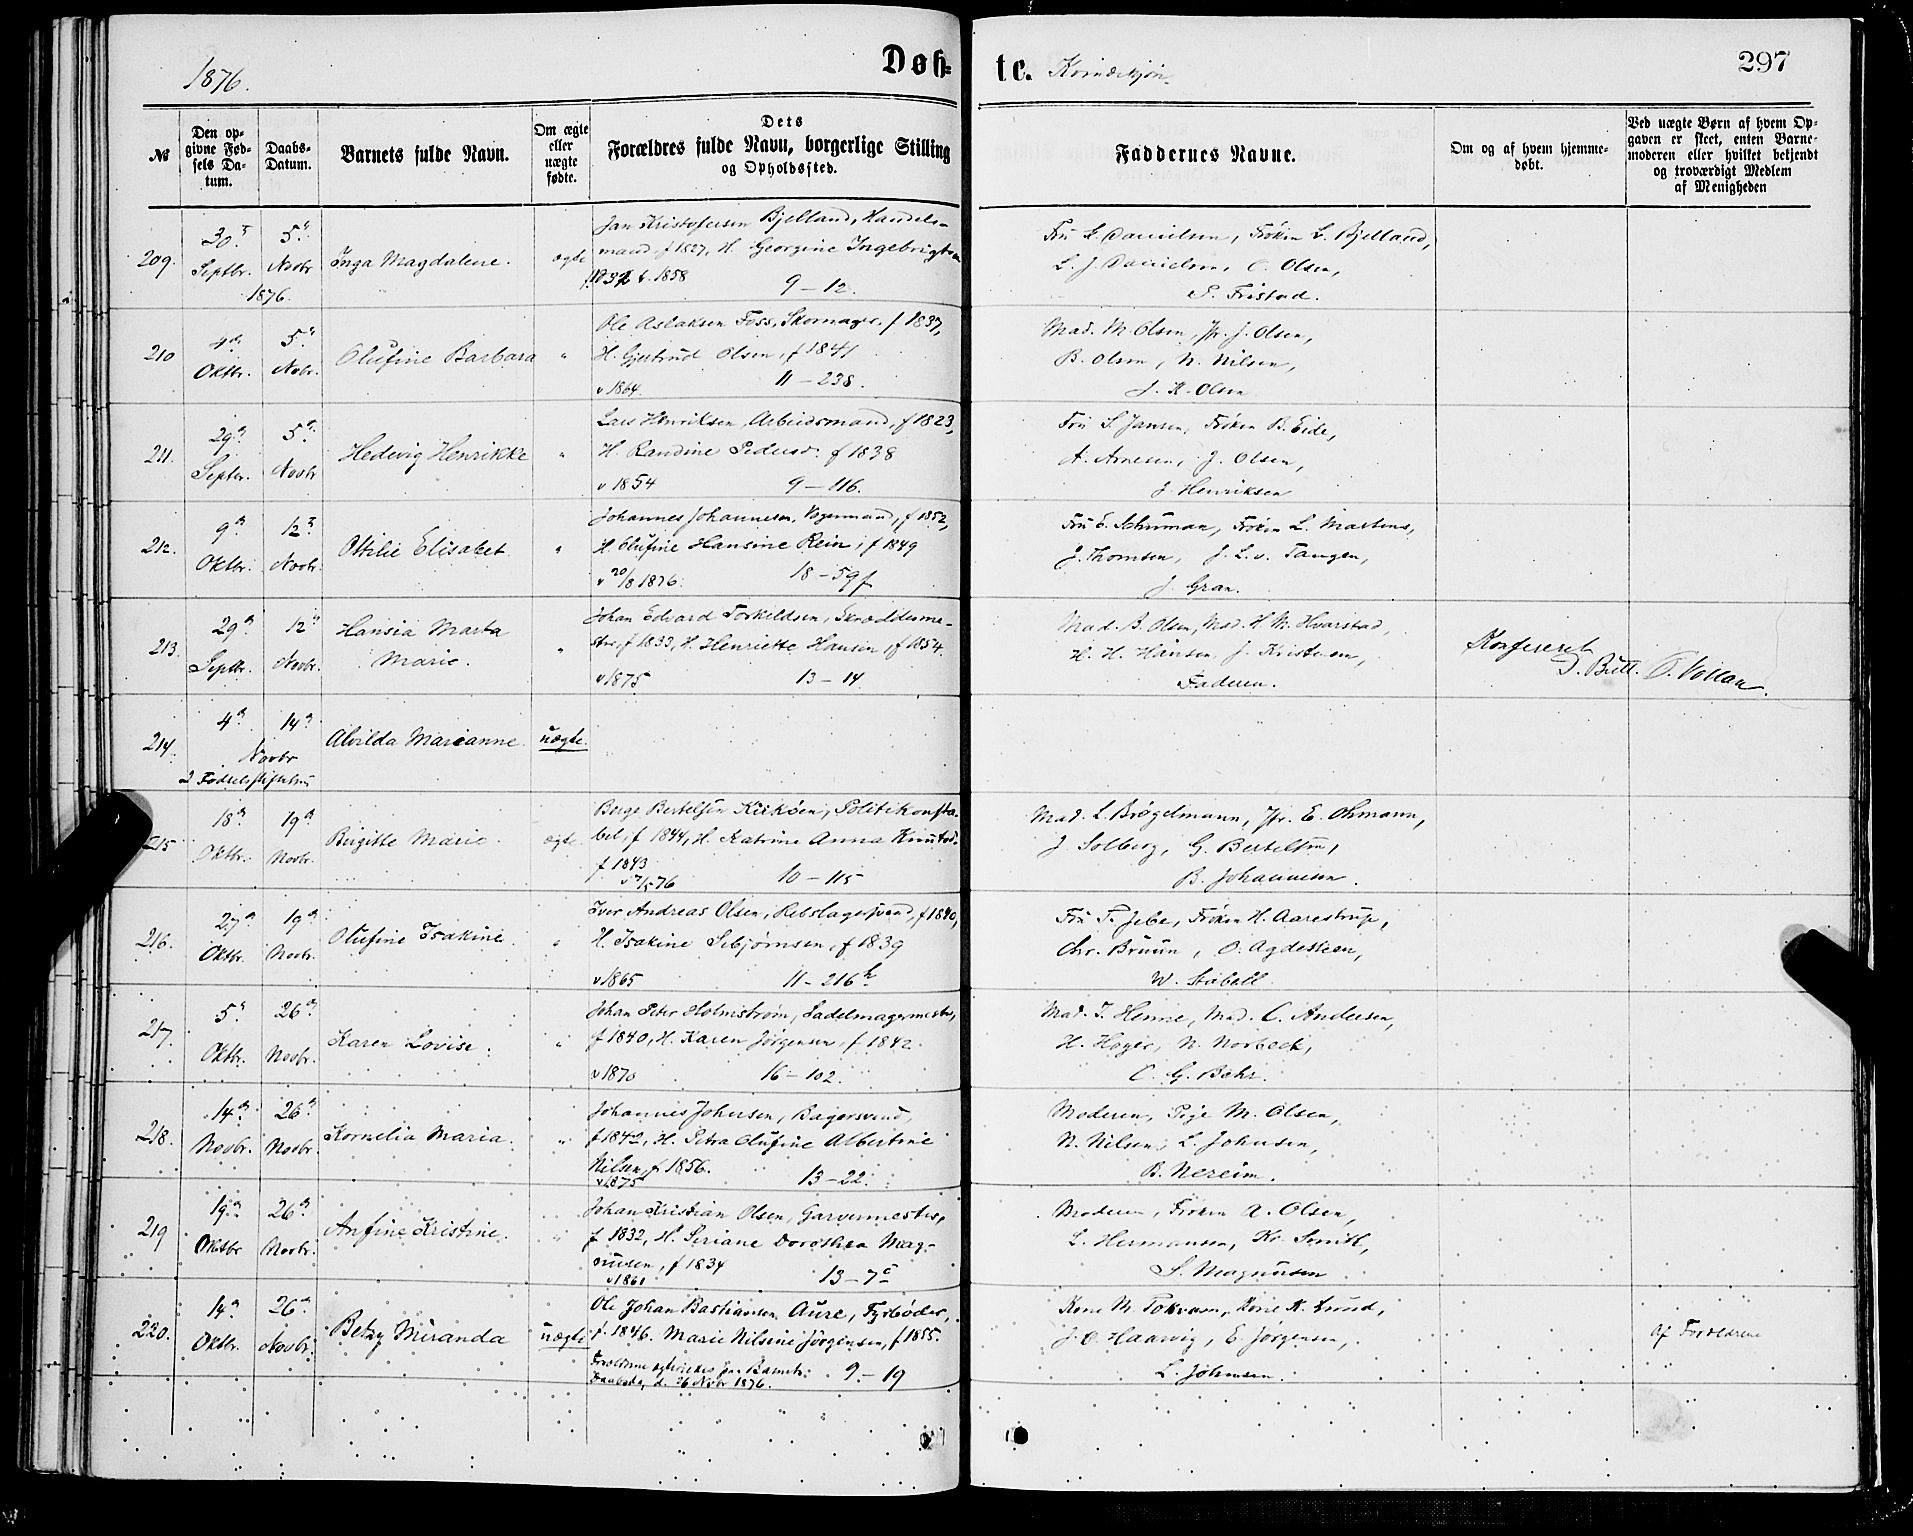 1876.
Døb-
te.
Kvindekjøn.
297
№
Den op-
givne Fød-
sels Da-
tum.
Daabs-
Datum.
Barnets fulde Navn.
Om ægte
eller
uægte
fødte.
Dets
Forældres fulde Navn, borgerlige Stilling
og Opholdssted.
Faddernes Navne.
Om og af hvem hjemme-
døbt.
Ved uægte Børn af hvem Op-
gaven er skeet, enten Barne-
moderen eller hvilket bekjendt
og troværdigt Medlem
af Menigheden
209.
30
Septbr.
5
Novbr
1876.
Inga Magdalene.
ægte
Jan Kristofersen Bjelland, Handels-
mand f 1827, H. Georgine Ingebrigtsen
1858
9 – 12.
Fru L. Danielsen, Frøken L. Bjelland,
L. J. Danielsen, C. Olsen,
S. Fristad.
210
4
Oktbr.
5
Novbr.
Olufine Barbara
"
Ole Aslaksen Foss, Skomager, f 1837,
H. Gjertrud Olsen, f 1841
v 1864.
11 – 238.
Mad. M. Olsen, Jfr. J. Olsen,
B. Olsen, N. Nilsen,
J. K. Olsen
211.
29
Septbr.
5
Novbr
Hedevig Henrikke
"
Lars Henriksen, Arbeidsmand, f 1823,
H. Randine Pedersd. f 1838
v 1854
9 – 116.
Fru S. Jansen, Frøken B. Eide,
A. Arnesen, J. Olsen,
J. Henriksen
212.
9
Oktbr.
12
Novbr.
Ottilie Elisabet
"
Johannes Johannesen, Vognmand, f 1852,
H. Olufine Hansine Rein, f 1849
v 20/8 1876.
18 – 59f
Fru E. Schuman, Frøken L. Martens,
J. Thomsen, J. L. v. Tangen,
J. Gran.
213.
29
Septbr.
12
Novbr.
Hansia Marta
Marie.
"
Johan Edvard Torkeldsen, Skræddeme-
ster, f 1833, H. Henriette Hansen, f 1854.
v 1875
13 – 14
Mad. B. Olsen, Mad. H. M. Hvarstad,
H. H. Hansen, J. Kristensen,
Faderen.
Konfereret
D. Bull. O. Vollan.
214.
4
14
Novbr
2 Fødselsstiftelsen
Alvilda Marianne.
uægte.
215
18
Oktbr.
19
Novbr.
Birgitte Marie.
ægte
Berge Bertelsen Kirkøen, Politikonsta-
bel, f 1844, H. Katrine Anna Knutsd.
f 1843
10 – 115
Mad. L. Brøgelmann, Jfr. E. Ohmann,
J. Solberg, G. Bertelsen,
B. Johannesen.
216.
27
Oktbr.
19
Novbr.
Olufine Isakine.
"
Iver Andreas Olsen, Rebslagersvend, f 1840,
H. Isakine Sebjørnsen, f 1839
v 1865
11 – 216 h
Fru T. Jebe, Frøken H. Aarestrup,
Chr. Bruun, O. Agdesteen,
W. Stabell
217.
5
Oktbr.
26
Novbr.
Karen Lovise.
"
Johan Peter Holmstrøm, Sadelmagermester,
f 1840, H. Karen Jørgensen, f 1842.
v 1870
16 – 102.
Mad. I. Henne, Mad. C. Andersen,
H. Høyer, N. Norbeck,
C. G. Behr.
218.
14
Novbr.
26
Novbr.
Kornelia Maria.
"
Johannes Johnsen, Bagersvend,
f 1842, H. Petra Olufine Albertine
Nilsen, f 1856.
v 1875
13 – 22.
Moderen, Pige M. Olsen,
N. Nilsen, L. Johnsen,
B. Nereim.
219
19
Oktbr
26
Novbr.
Anfine Kristine.
"
Johan Kristian Olsen, Garvermester,
f 1832, H. Seriane Dorothea Mag-
nusen, f 1834
v 1861
13 – 7 c
Moderen, Frøken A. Olsen,
L. Hermansen, Kr. Smith,
S. Magnusen
220.
14
Oktbr.
26
Novbr.
Betzy Miranda
uægte
Ole Johan Bastiansen Aure, Fyrbøder,
f. 1846. Marie Nilsine Jørgensen, f 1855.
Forældrene ægteviedes før Barnets
Daabsdag, d. 26 Novbr 1876.
9 – 19
Kone M. Tokvam, Kone K. Lund,
J. O. Haarvig, E. Jørgensen,
L. Johnsen.
Af Forældrene